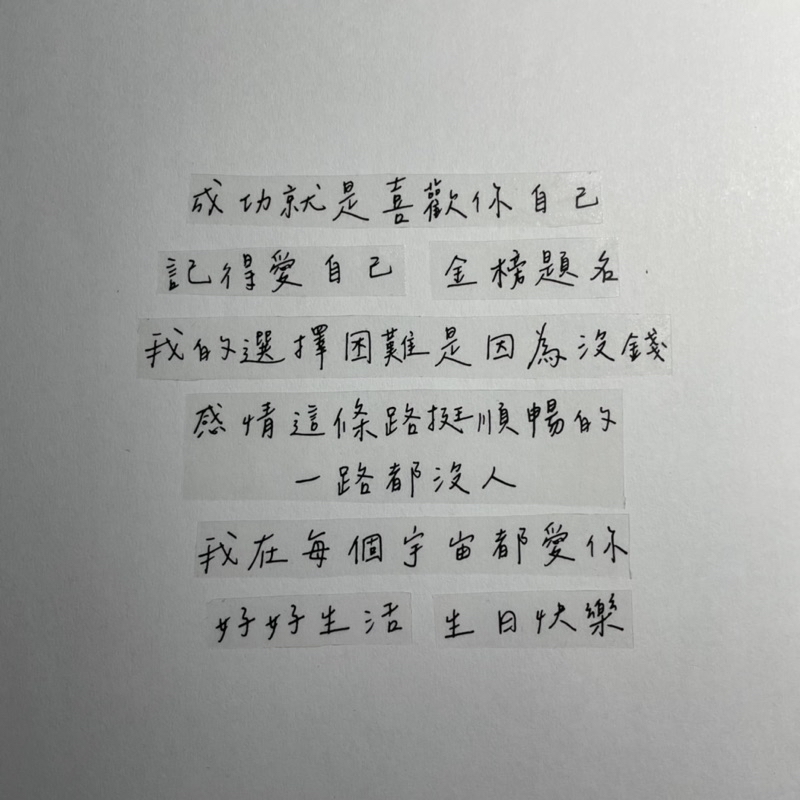 成功就是喜歡你自己
記得愛自己 金榜題名
我的選擇困難是因為沒錢
感情這條路挺順暢的
一路都沒人
我在每個宇宙都愛你
好好生活 生日快樂